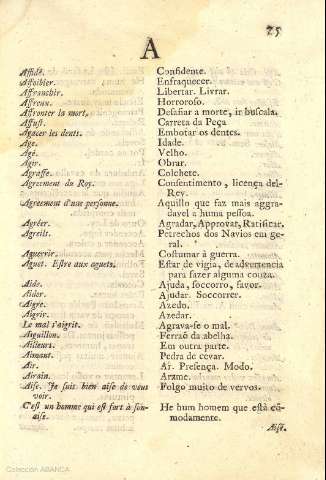 25
A
Affidé. Confidente.
Affoiblir. Enfraquecer.
Affranchir. Libertar. Livrar.
Affreux. Horroroso.
Affronter la mort. Desafiar a morte, ir buscala.
Affust. Carreta da Peça
Agacer les dents. Embotar os dentes.
Age. Idade.
Agé. Velho.
Agir. Obrar.
Agraffe. Colchete.
Agreement du Roy. Consentimento, licença del-
Rey.
Agreement d'une personne. Aquillo que faz mais aggra-
davel a huma pessoa.
Agréer. Agradar, Approvar, Ratificar.
Agreils. Petrechos dos Navios em ge-
ral.
Aguerrir. Costumar à guerra.
Aguet. Estre aux aguets. Estar de vigia, de advertencia
para fazer alguma couza.
Aide. Ajuda, soccorro, favor.
Aider. Ajudar. Soccorrer.
Aigre. Azedo.
Aigrir. Azedar.
Le mal s'aigrit. Agrava-se o mal.
Aiguillon. Ferraõ da abelha.
Ailleurs. Em outra parte.
Aimant. Pedra de cevar.
Air. Ar. Presença. Modo.
Airain. Arame.
Aise. Je suis bien aise de vous Folgo muito de vervos.
voir.
C'est un homme qui est fort à son- He hum homem que està cõ-
aise. modamente.
Aisé.
Colección ABANCA